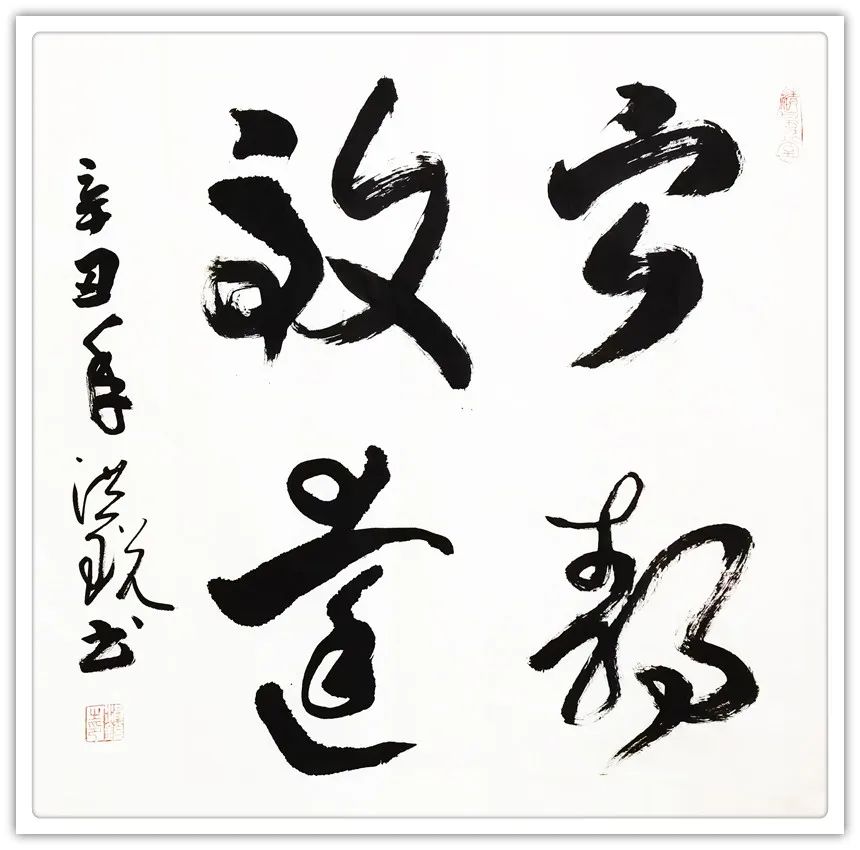 宁静
致远
辛丑年洪锐书